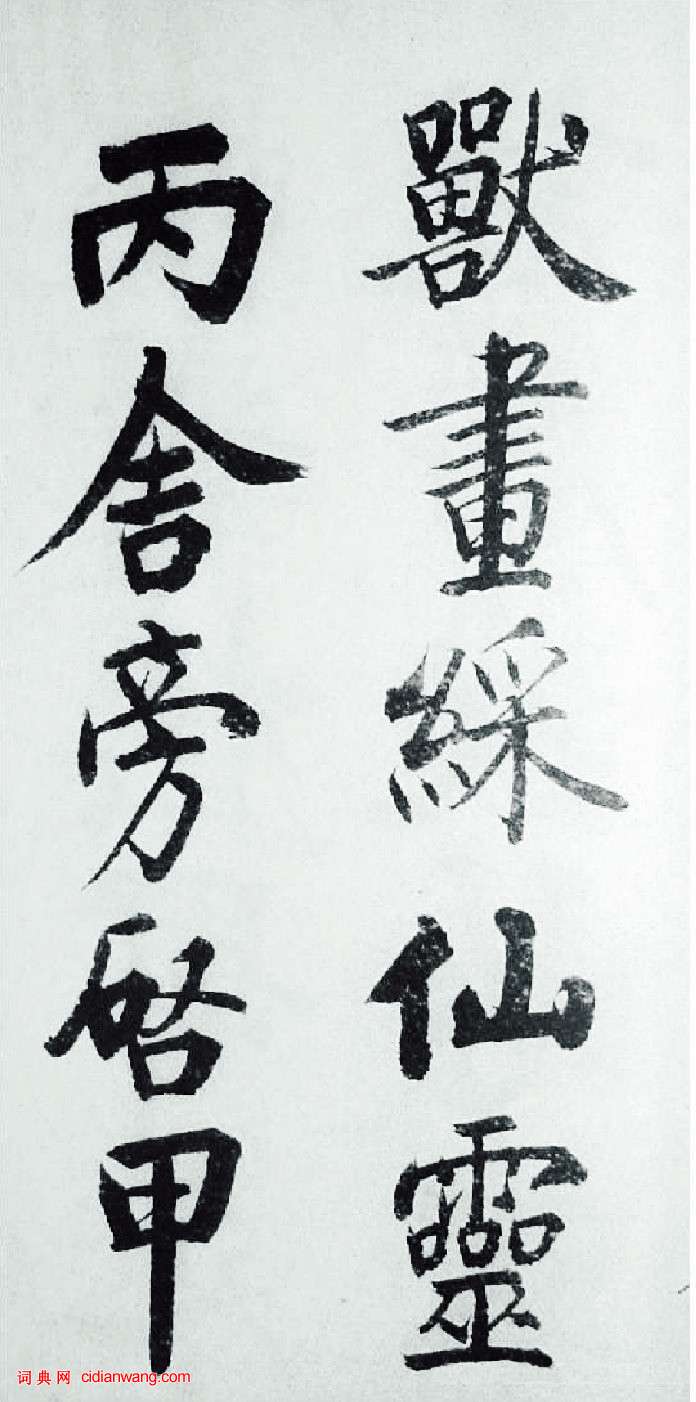 獸畫綵仙靈
丙舍旁啓甲
词典网 cidianwang.com